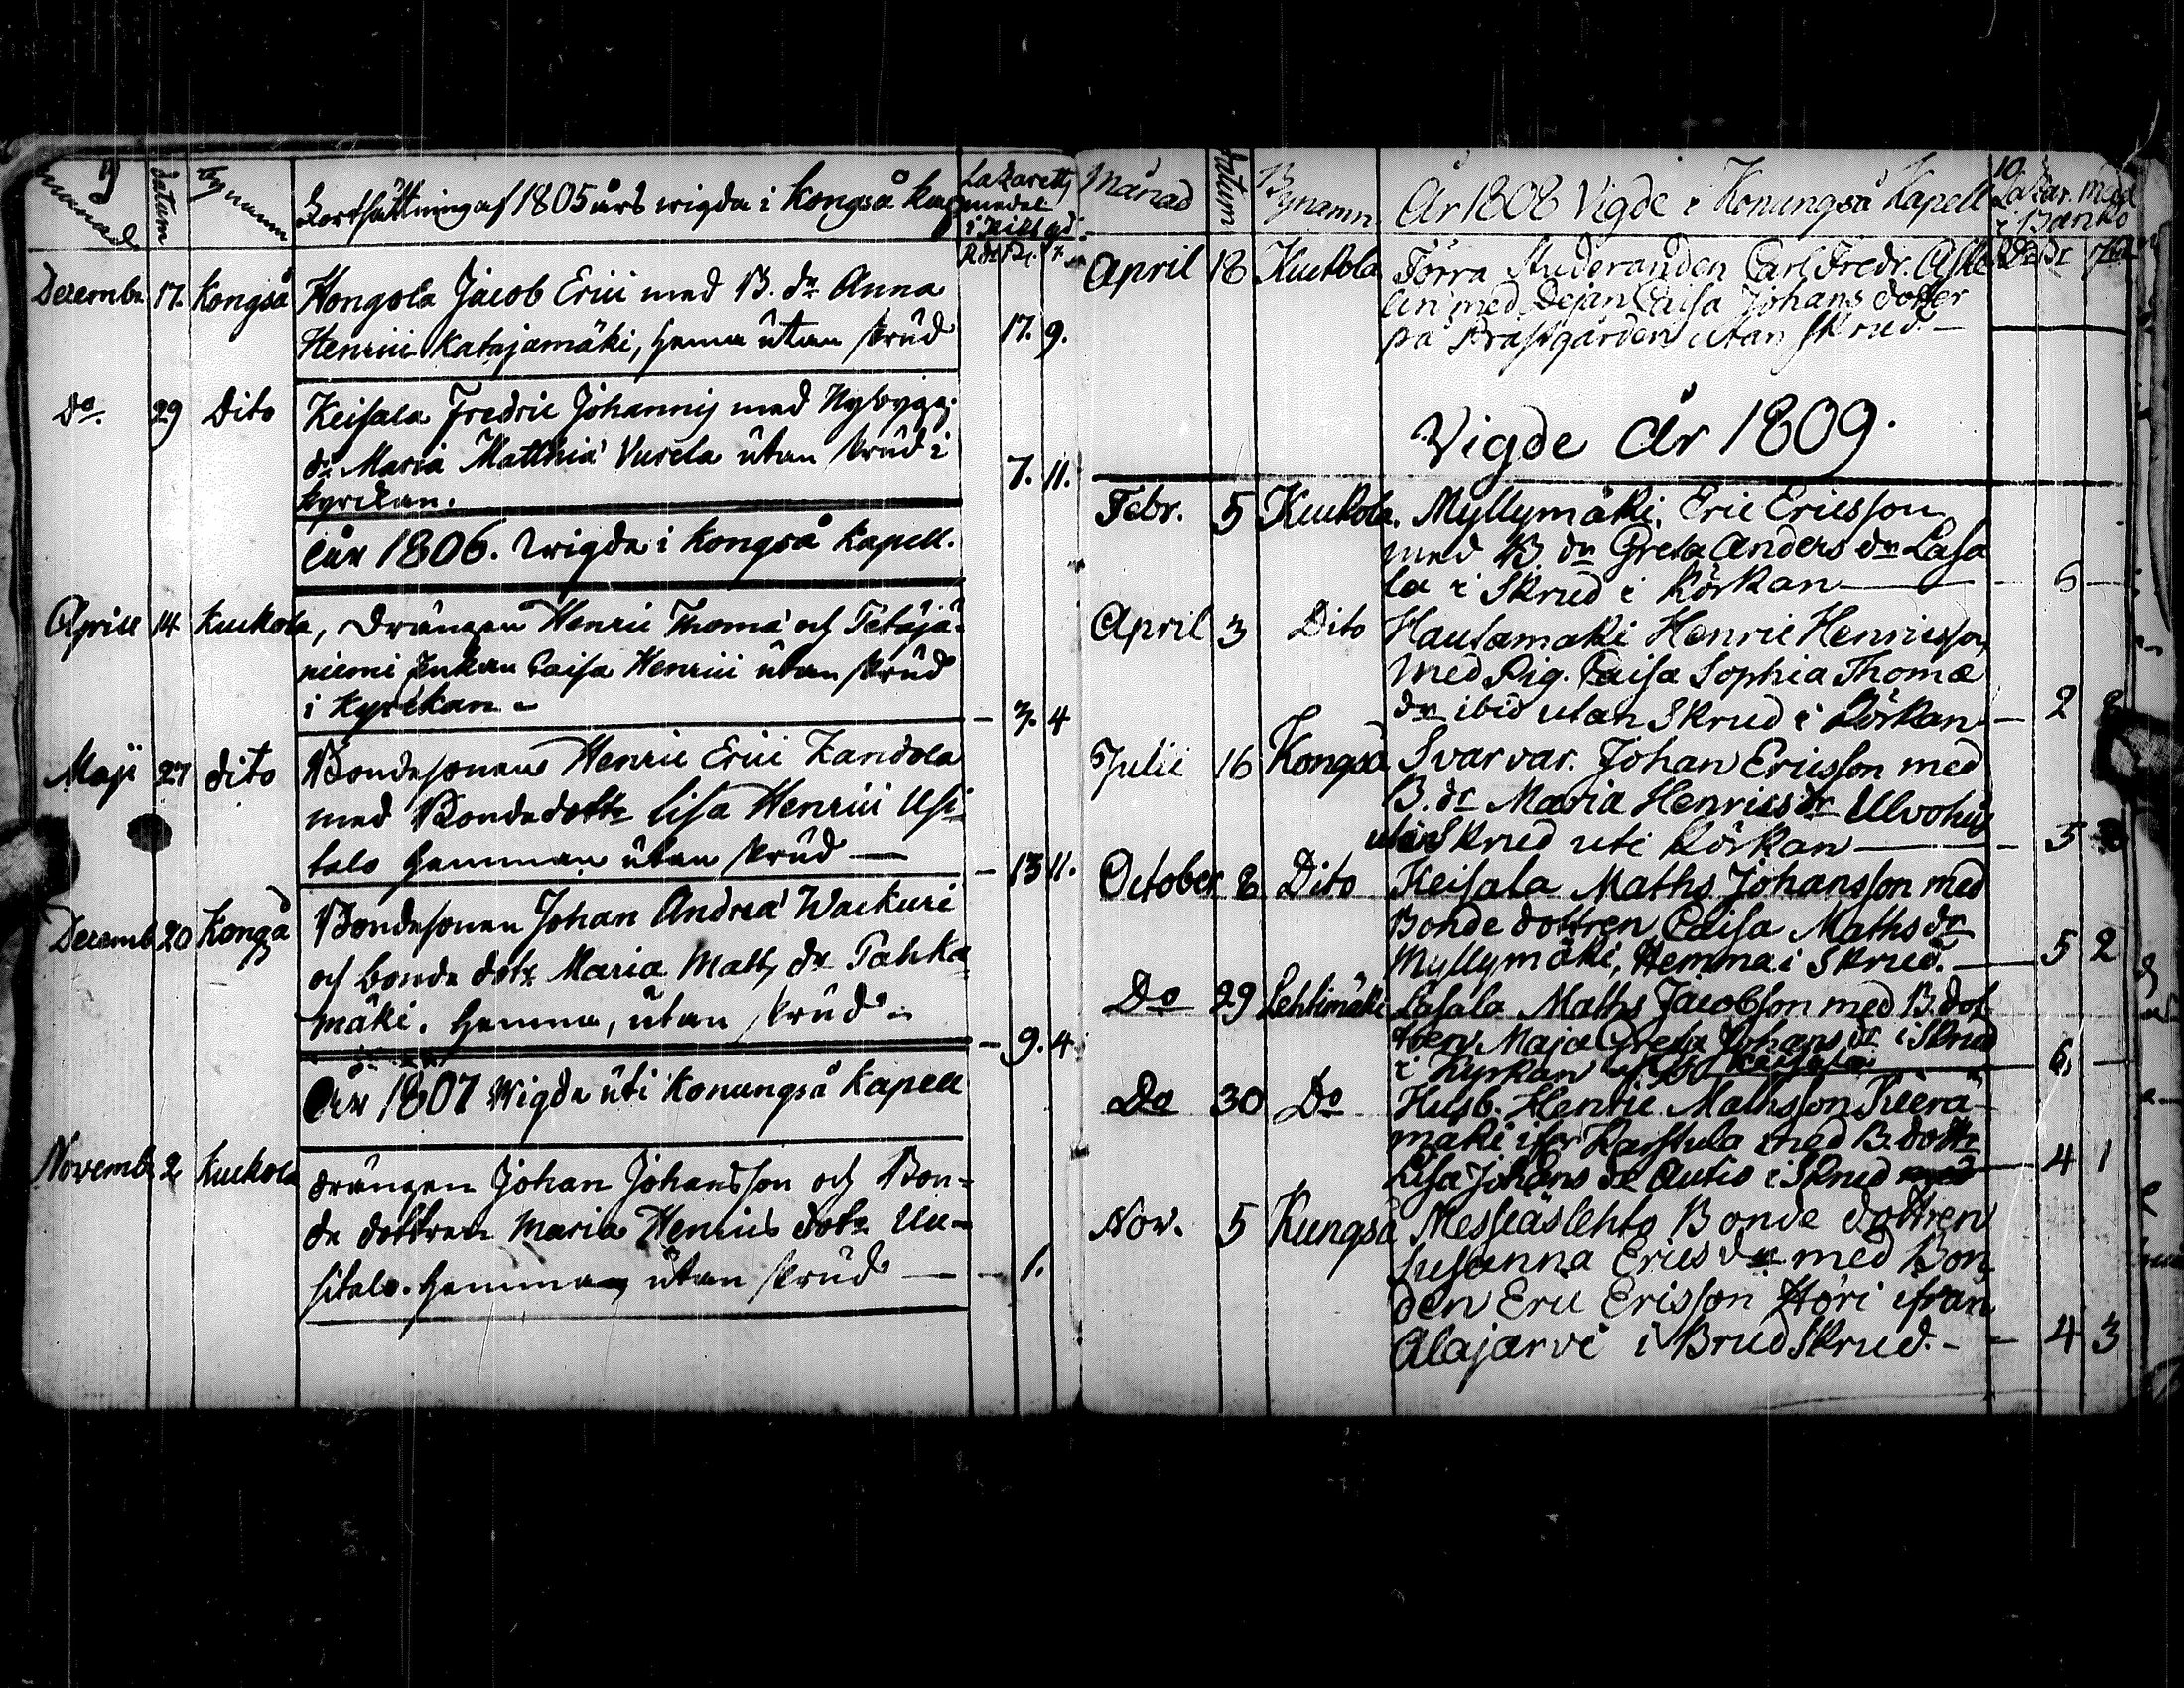 9
månad
datum
bynamn
Fortsättning af 1805 års wigda i Kongså Kap
Lazaretts
medel
i Rikl gd
Decembr 17. Kongså Hongola Jacob Erici med B. dr Anna
Henrici Katajamäki, hema utan skrud 17. 9.
Do. 29 Dito Keisala Fredric Johannis med Nybygg.
dr Maria Matthiæ Vurela utan skrud i
kyrckan. 7. 11.
År 1806. Wigda i Kongså Kapell.
Aprill 14 Kuckola, Drängen Henric Thomæ och Petäjä-
niemi Enkan Caisa Henrici utan skrud
i Kyrckan - 3. 4
Maji 27 dito Bondesonen Henric Erici Zandola
med Bondedottr Lisa Henrici Usi
talo hemman utan skrud — 13 11.
Decemb 20 Kongså Bondesonen Johan Andreæ Warkuri
och bonde dotr Maria Matts dr Pahka
mäki. hemma, utan skrud - 9. 4
År 1807 Wigda uti Konungså Kapell
Novembr 2 Kuckola drängen Johan Johansson och Bon-
de dottren Maria Henrics dotr Uu-
sitalo. hemma utan skrud — 1.
10
Månad
Datum
Bynamn.
År 1808 Vigde i Konungså Kapell
Lazar. med
i Banko
April 18 Kuckola Förra Studeranden Carl Fredr. Aske
lin med Dejan Caisa Johans dotter
på Prästgården utan Skrud. —
Vigde År 1809.
Febr. 5 Kuckola. Myllymäki, Eric Ericsson
med B. dr Greta Anders dr Lasa
la i Skrud i Körkan — 6 —
April 3 Dito Hautamaki Henric Henricsson,
med Pig. Caisa Sophia Thomæ
dr ibid utan Skrud i Körkan — 2
Julii 16 Kongså Svarvar. Johan Ericsson med
B. dr Maria Henrics dr Ulvohus
utan Skrud uti Körkan — 5
October 8 Dito Keisala Maths Johansson med
Bonde dottren Caisa Maths dr
Myllymäki, Hemma i Skrud. — 5 2
Do 29 Lehtimäki Lasala Maths Jacobsson med B. dot
tren Maja Greta Johans dr i Skrud
i Kyrkan Keisala 6 —
Do 30 Do Husb. Henric Mathsson Kiera-
mäki ifr Karstula med B. dottr
Lisa Johans dr Autio i Skrud — 4 1
Nov. 5 Kungså Messiäslehto Bonde dottren
Susanna Erics dr med Bon
den Eric Erisson Höri ifrån
Alajarvi i Brud Skrud. - 4 3